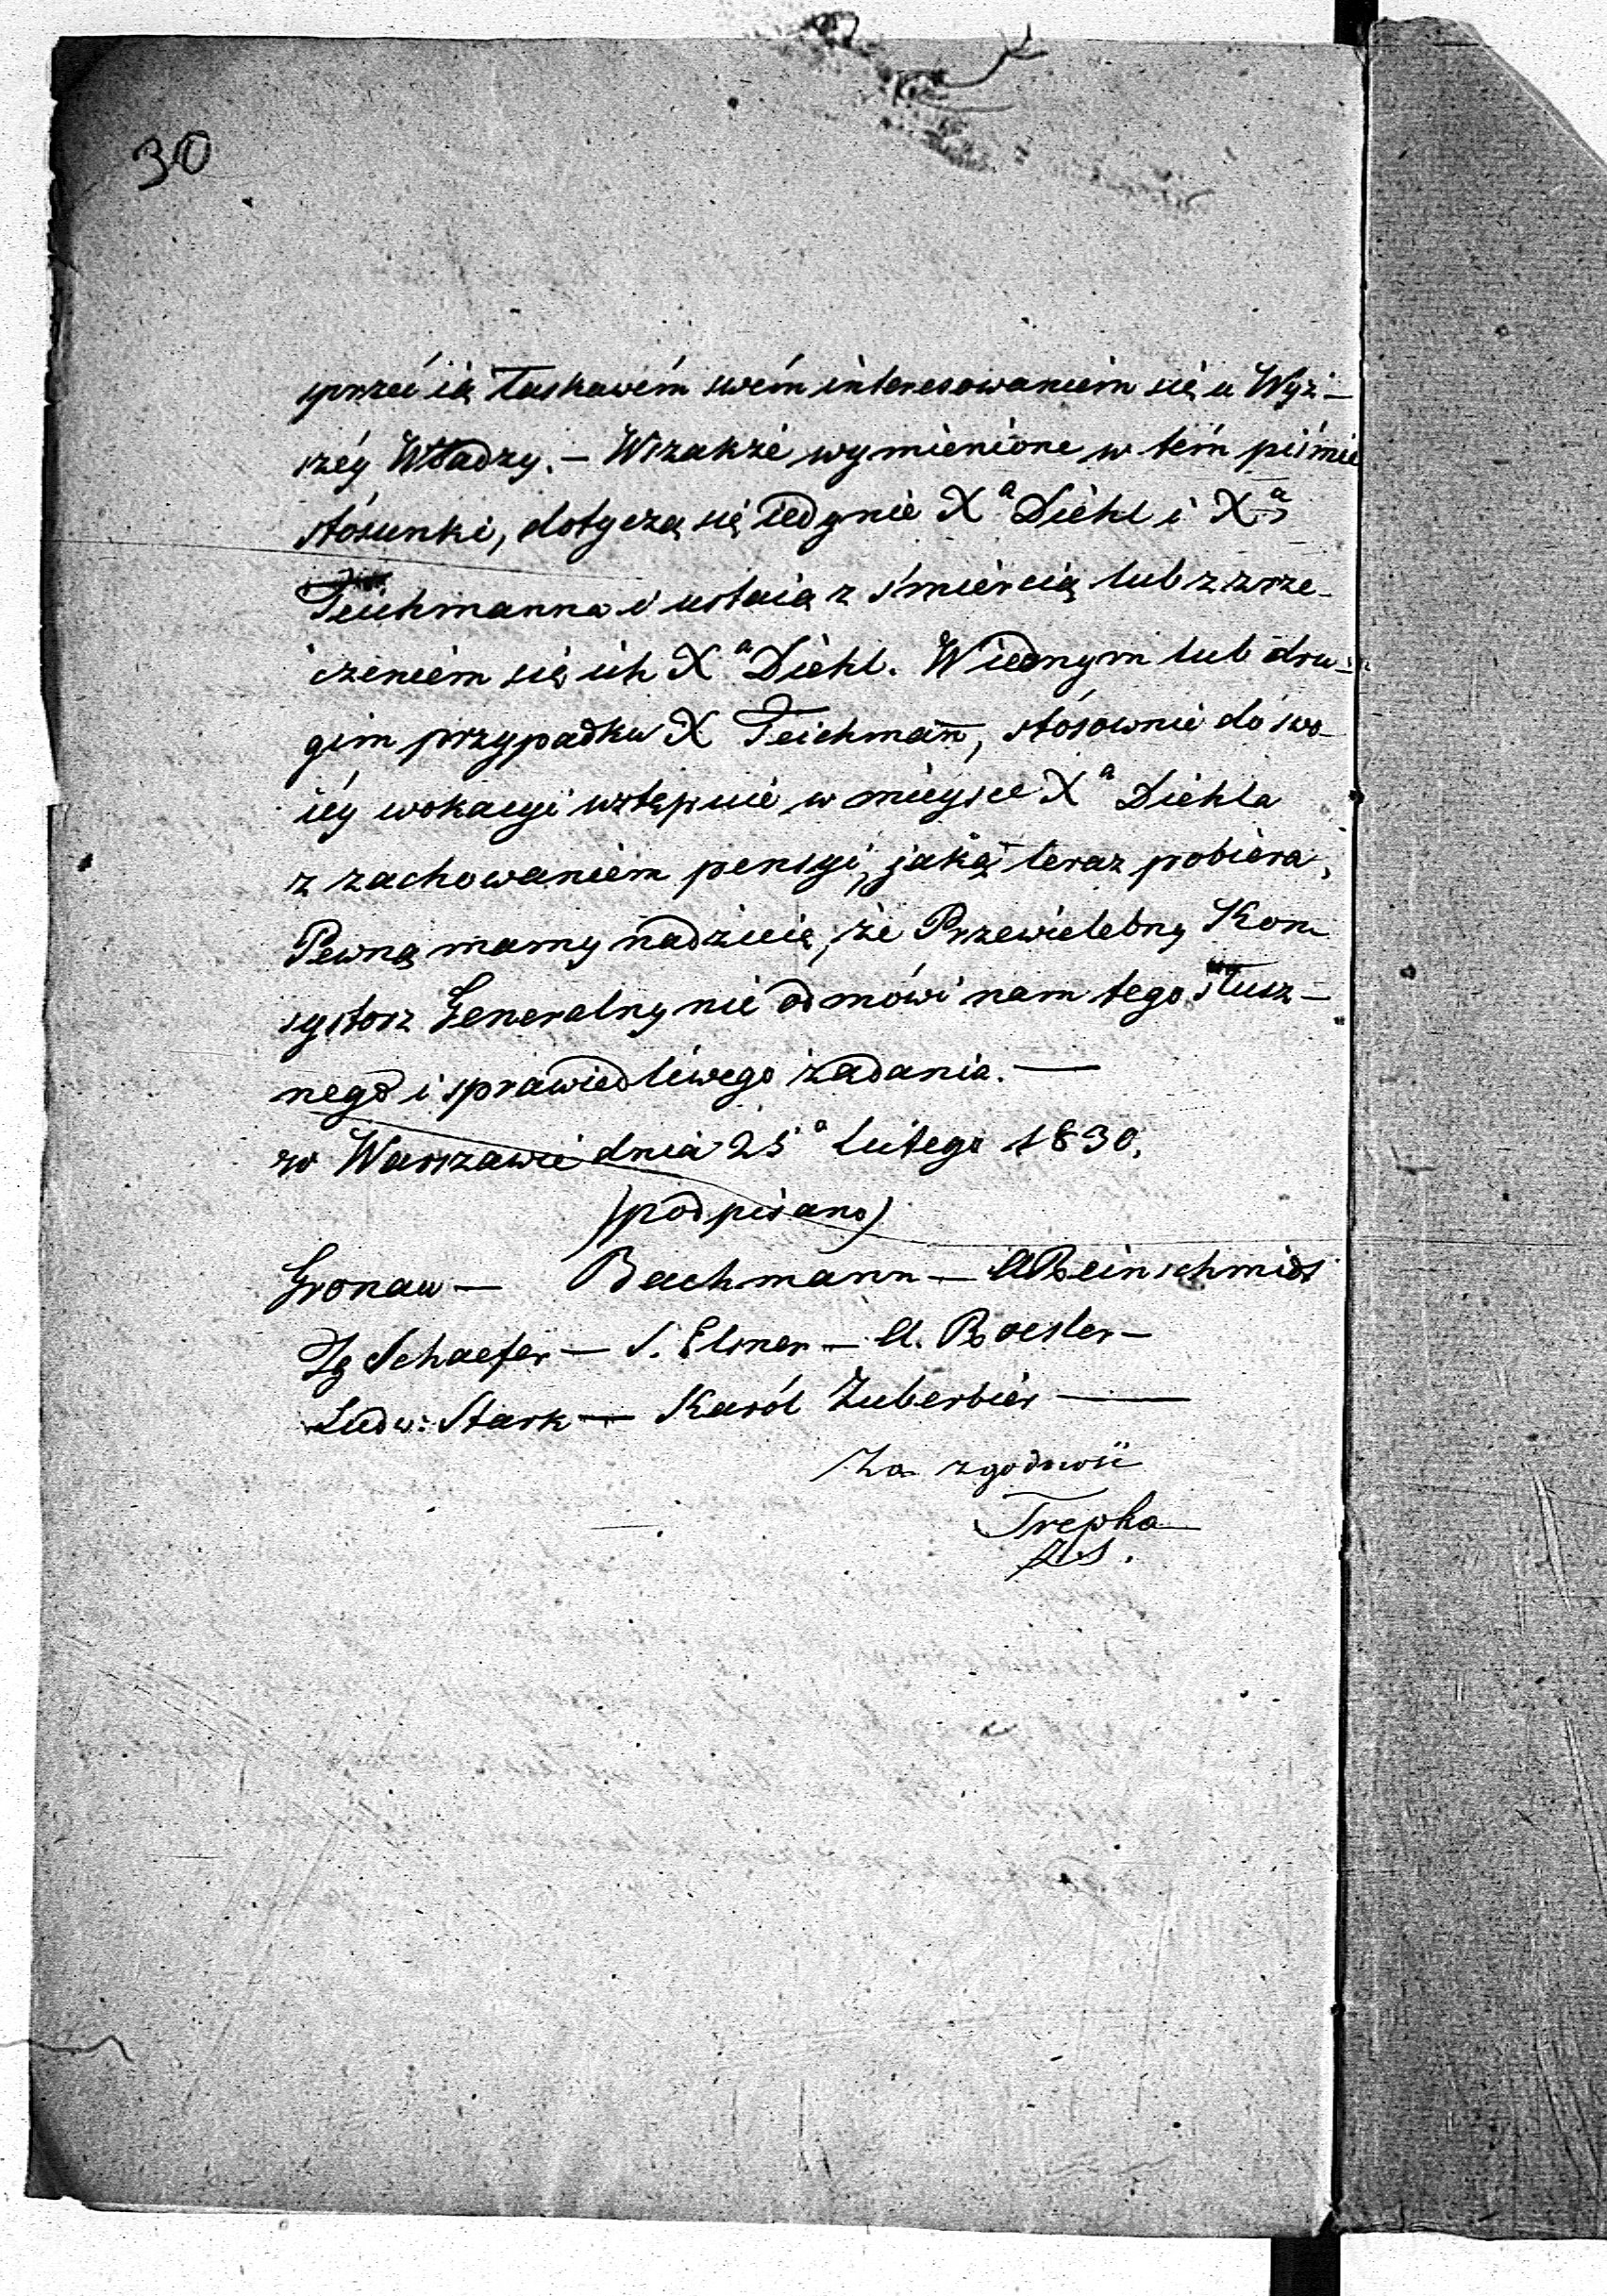 30
przeć ią łaskawém swém interesowaniem się u Wyż-
széy Władzy. – Wszakże wymienione w tém piśmie
stósunki, dotyczą się iedynie Xᵃ Diehl i Xᵃ
Teichmanna i ustaią z śmiercią lub z zrze-
czeniem się ich Xᵃ Diehl. W iednym lub dru-
gim przypadku X Teichmañ, stósownie do swo-
iéy wokacyi wstępuie w mieysce Xᵃ Diehla
z zachowaniem pensyi, jaką teraz pobiera,
Pewną mamy nadzieię, że Przewielebny Kon
systorz Generalny nie odmówi nam tego słusz-
nego i sprawiedliwego żadania. —
w Warszawie dnia 25ᵃ Lutego 1830.
(podpisano)
Gronaw — Bachmann — A Beinschmidt
Ig Schaefer — S. Elsner — A. Roesler —
Ludw: Stark — Karól Zuberbier —
Za zgodność
Trepka
ZS.